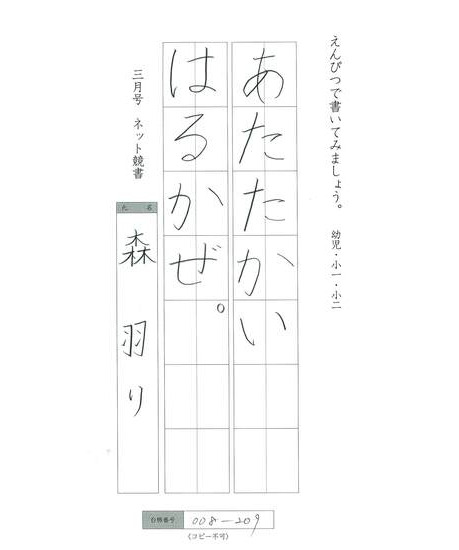 えんぴつで書いてみましょう。 幼児・小一・小二
あたたかい
はるかぜ。
三月号 ネット競書
氏 名
森 羽り
台帳番号 008-209
(コピー不可)